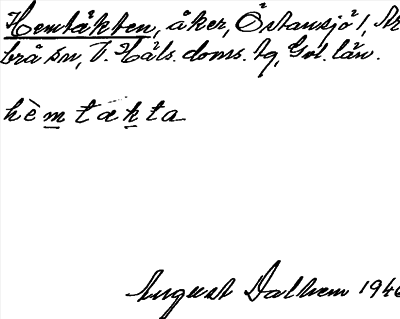 Hemtäkten, åker, Östansjö 1, Är
brå sn, V. Häls. doms. tg, Gvl. län.
hèmtækta
August Dalhem 1946